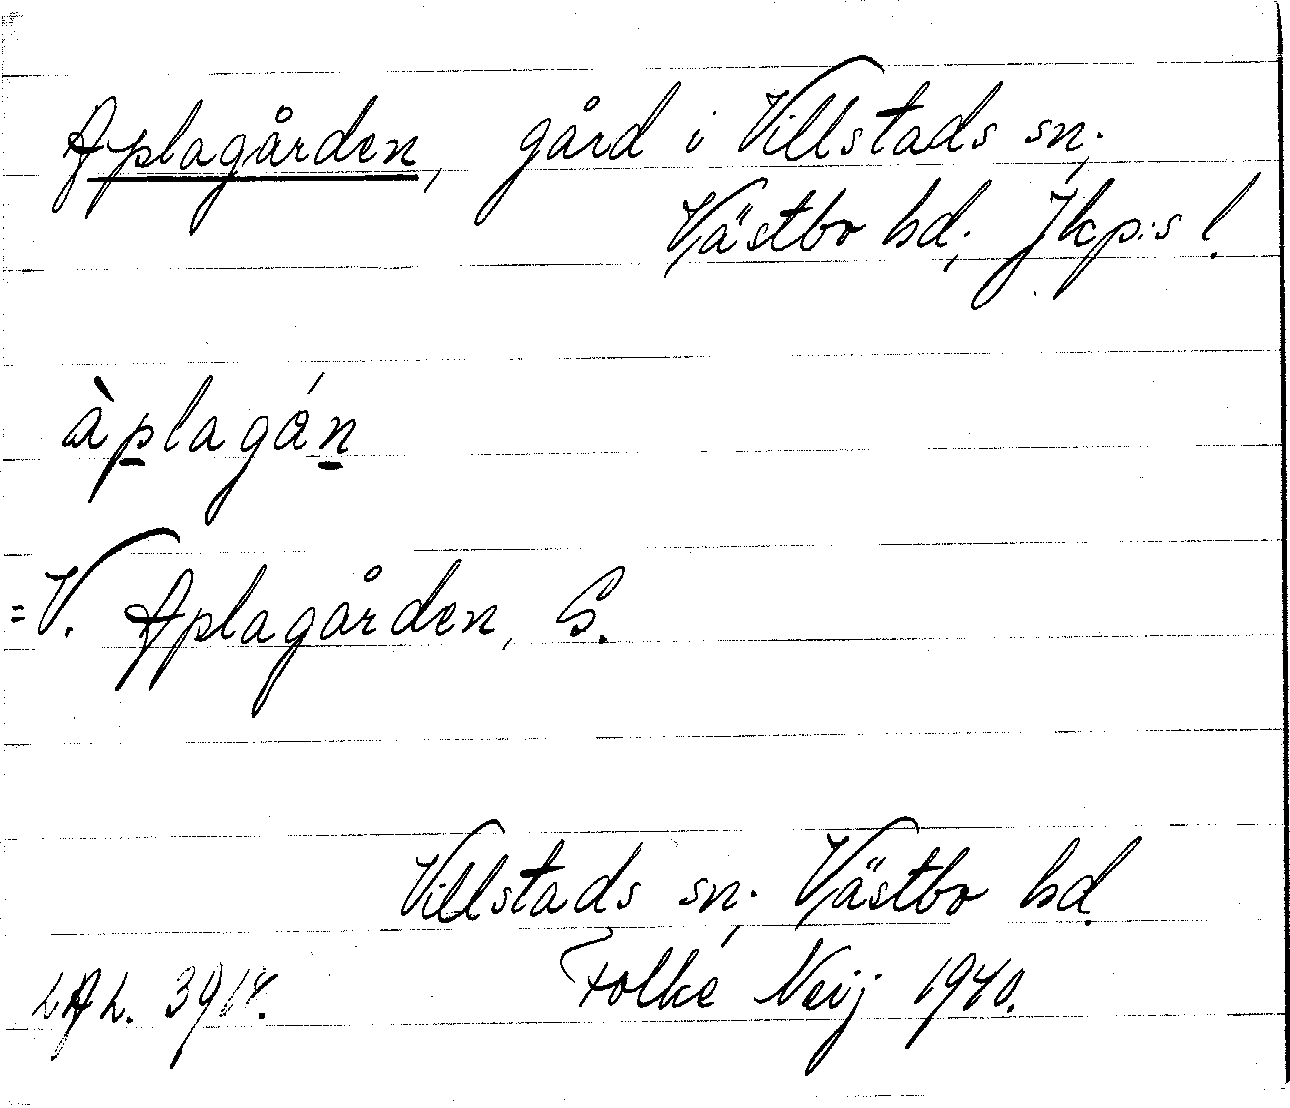 Aplagården, gård i Villstads sn,
Västbo hd, Jkp:s l.
àplagån
= V. Aplagården, S.
Villstads sn, Västbo hd.
LAL. Folke Neij 1940.